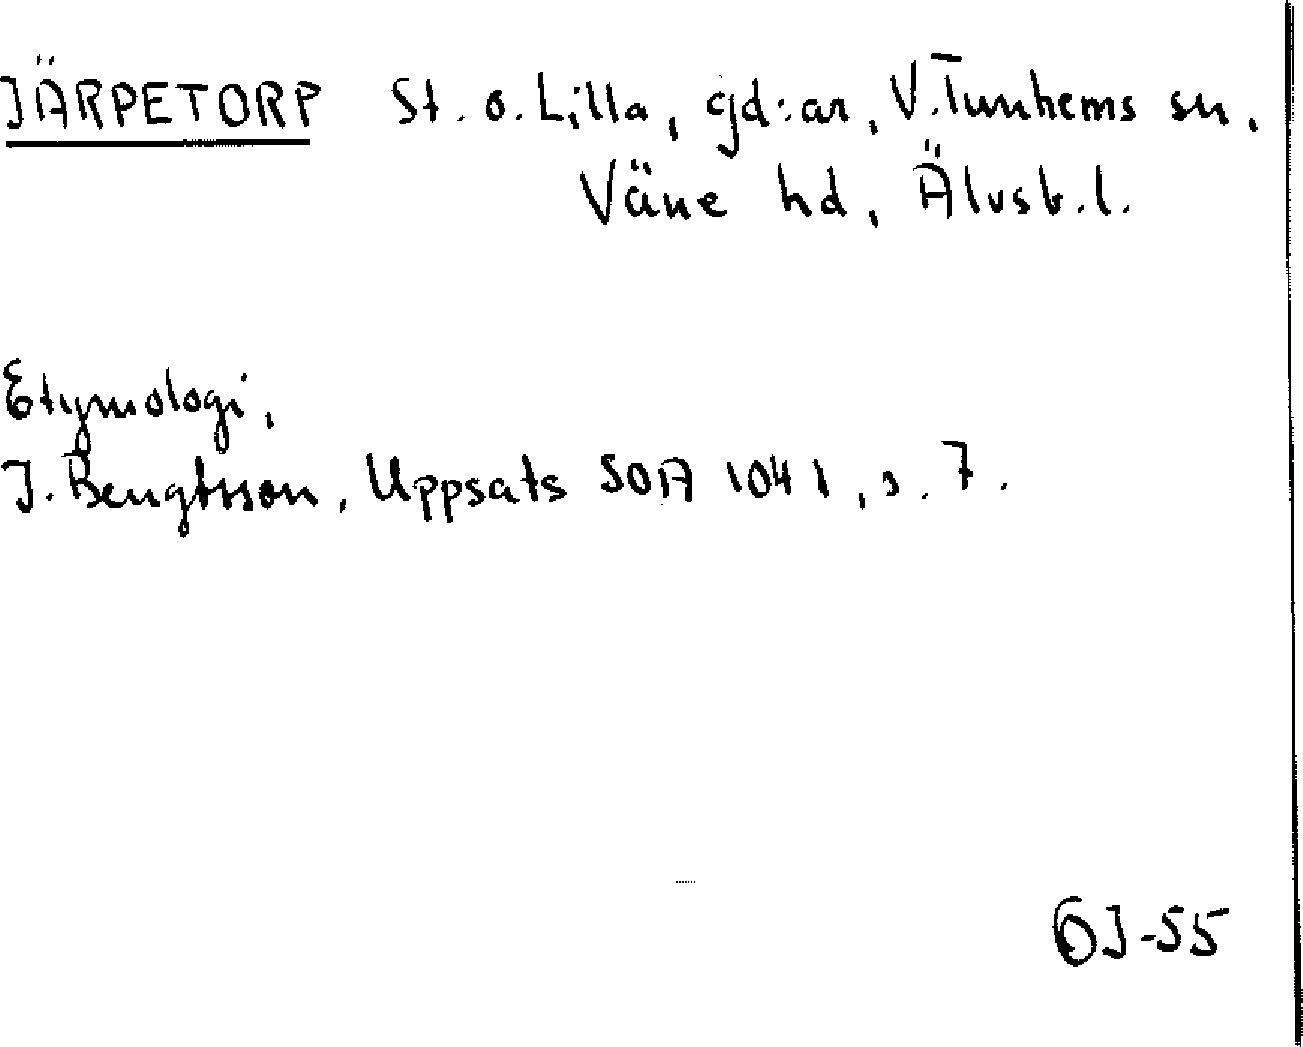 JÄRPETORP St. o. Lilla, gd:ar, V. Tunhems sn,
Väne hd, Älvsb. l.
Etymologi,
J. Bengtsson, Uppsats SOA 1041, s. 7.
ÖJ-55